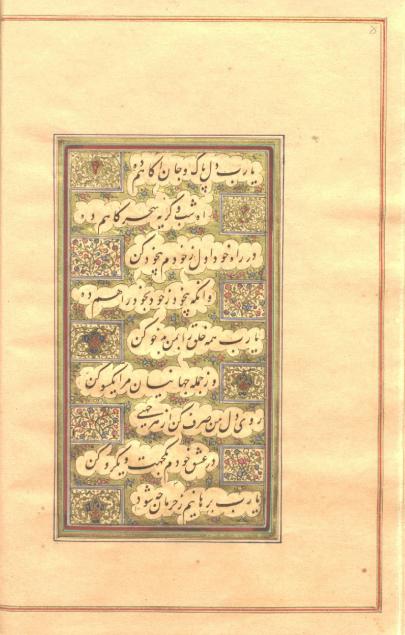 یارب دل پاک و جان آکاهم ده
آه شب و کریه سحرکاهم ده
در راه خود اول ز خودم بیخود کن
وانکه بیخود ز خود بخود راهم ده
یارب همه خلق را بمن بدخو کن
وز جمله جهانیان مرا یکسو کن
روی دل من صرف کن از هر جهتی
در عشق خودم یکجهت و یکرو کن
یارب برهانیم ز حرمان چه شود